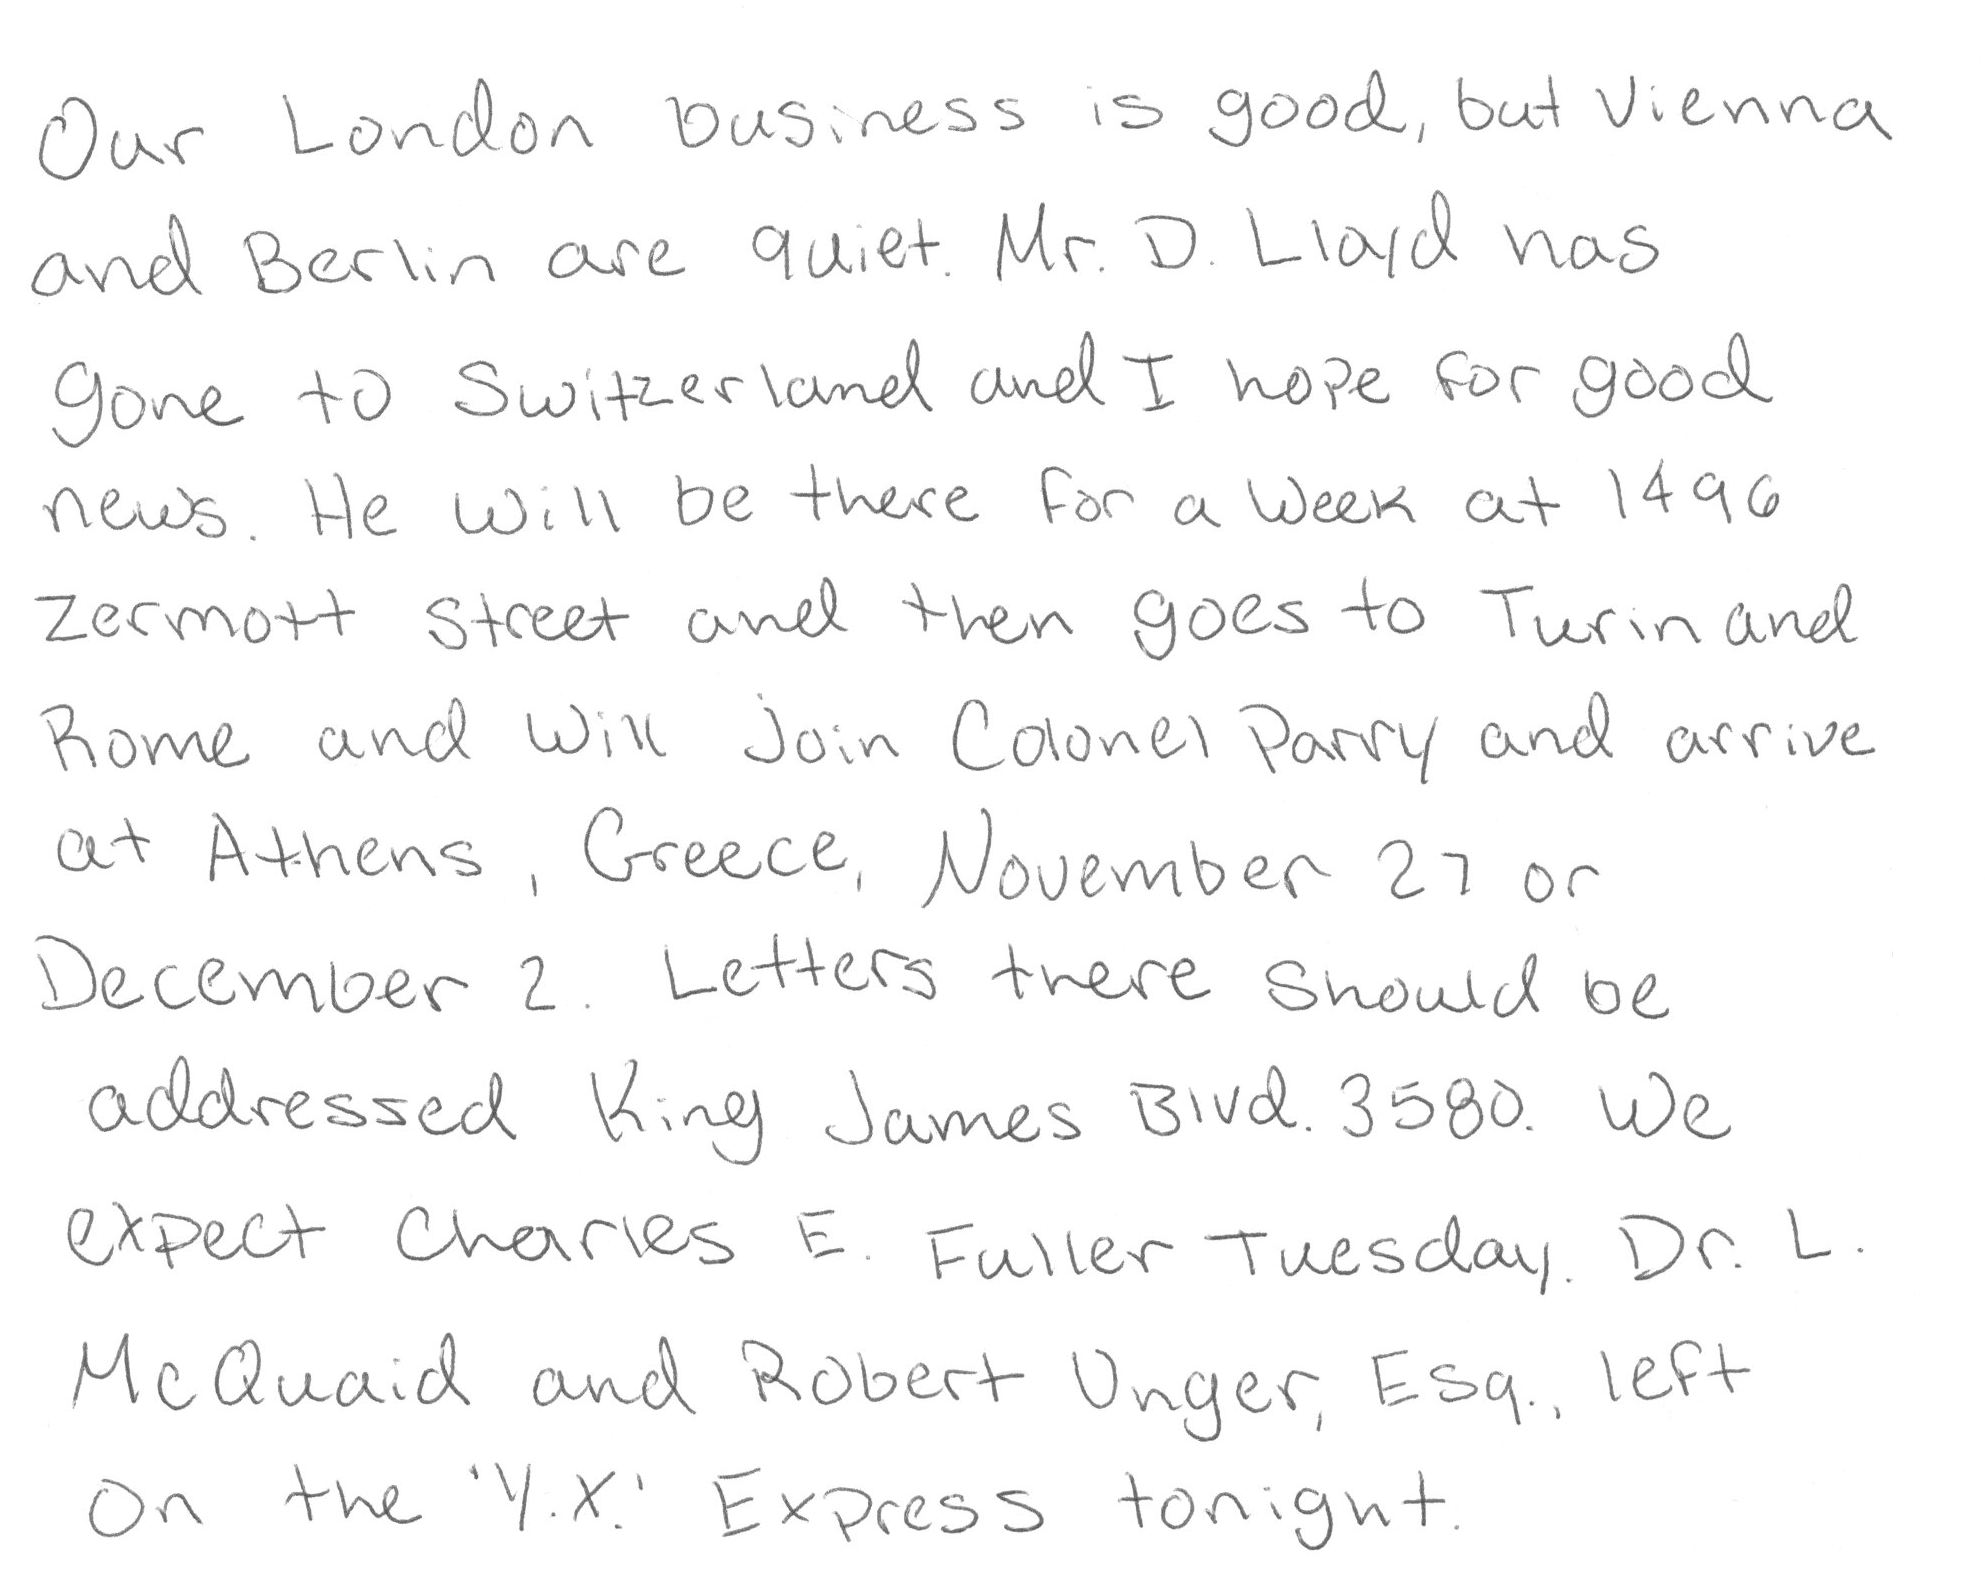 Our London business is good, but Vienna
and Berlin are quiet. Mr. D. Lloyd has
gone to Switzerland and I hope for good
news. He will be there for a week at 1496
Zermott Street and then goes to Turin and
Rome and will join Colonel Parry and arrive
at Athens, Greece, November 27 or
December 2. Letters there should be
addressed King James Blvd. 3580. We
expect Charles E. Fuller Tuesday. Dr. L.
McQuaid and Robert Unger, Esq., left
on the 'Y.X.' Express tonight.